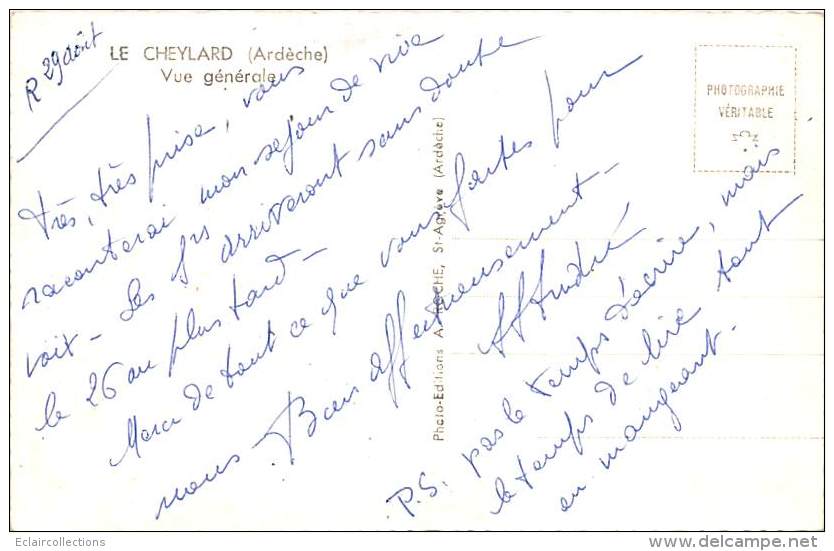 R 29 août
LE CHEYLARD (Ardèche)
Vue générale
Très, très prise, vous
raconterai mon séjour de vive
voix - Les frs arriveront sans doute
le 26 au plus tard -
Merci de tout ce que vous faites pour
nous Bien affectueusement -
André
P.S. pas le temps d'écrire, mais
le temps de lire tout
en mangeant.
Photo-Editions A. ROCHE, St-Agrève (Ardèche)
PHOTOGRAPHIE
VÉRITABLE
Eclaircollections
www.delcampe.net